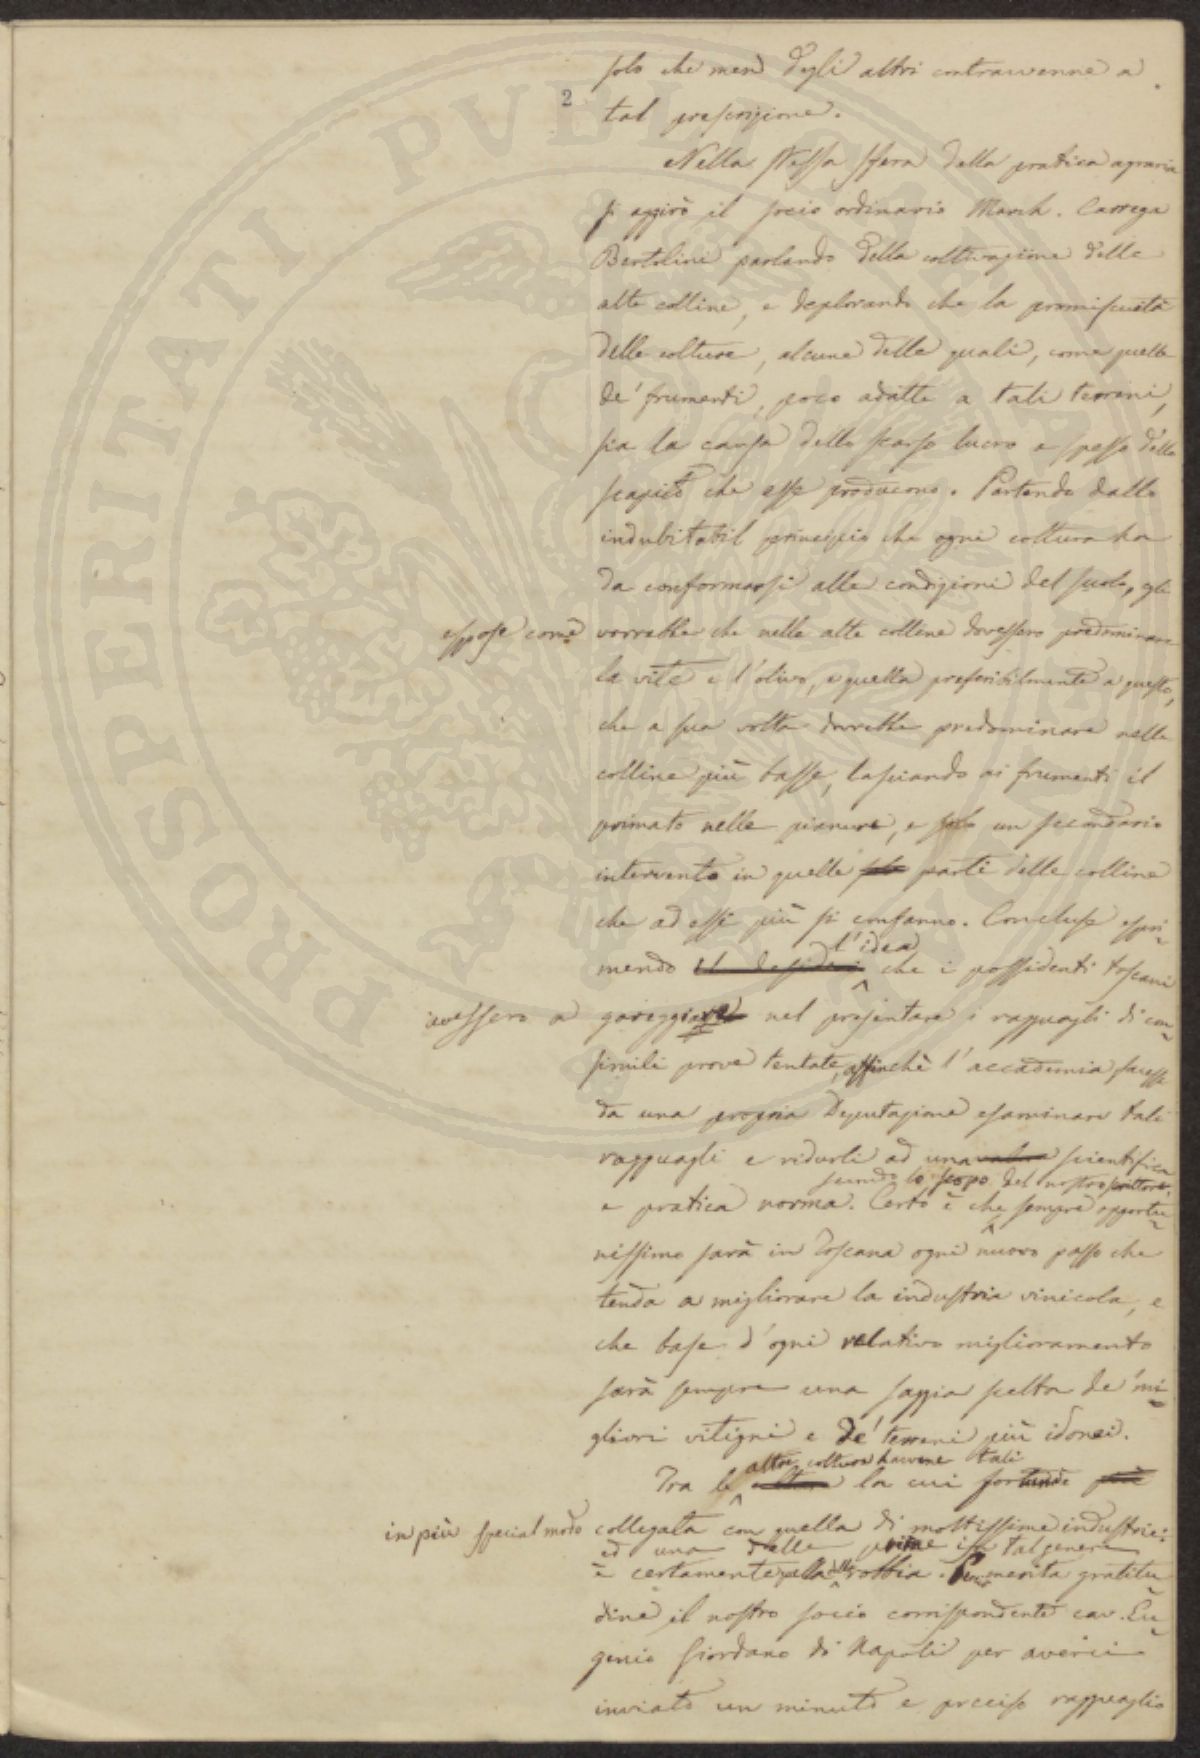 solo che men degli altri contravvenne a
2
tal prescrizione.
Nella stessa sfera della pratica agraria
si aggirò il socio ordinario March. Carrega
Bertolini parlando della coltivazione delle
alte colline, e deplorando che la promiscuità
delle colture, alcune delle quali, come quella
de' frumenti, poco adatte a tali terreni,
sia la causa dello scarso lucro e spesso dello
scapito che esse producono. Partendo dallo
indubitabil principio che ogni coltura ha
da conformarsi alle condizioni del suolo, gli
espose come vorrebbe che nelle alte colline dovessero predominare
la vite e l'olivo, e quella preferibilmente a questo,
che a sua volta dovrebbe predominare nelle
colline più basse, lasciando ai frumenti il
primato nelle pianure, e solo un secondario
intervento in quelle solo parti delle colline
che ad essi più si confanno. Concluse espri-
l'idea
mendo il desideri che i possidenti toscani
avessero a gareggiare nel presentare i ragguagli di con-
simili prove tentate, affinchè l'accademia facesse
da una propria Deputazione esaminare tali
ragguagli e ridurli ad una scientifica
secondo lo scopo del nostro scrittore.
e pratica norma. Certo è che sempre opportu-
nissimo sarà in Toscana ogni nuovo passo che
tenda a migliorare la industria vinicola, e
che base d'ogni relativo miglioramento
sarà sempre una saggia scelta de' mi-
gliori vitigni e de' terreni più idonei.
altre colture havvene tali
Tra le la cui è più
in più special modo collegata con quella di moltissime industrie:
ed una delle prime in tal genere
è certamente quella della robbia. merita gratitu-
dine il nostro socio corrispondente cav. Eu-
genio Giordano di Napoli per averci
inviato un minuto e preciso ragguaglio